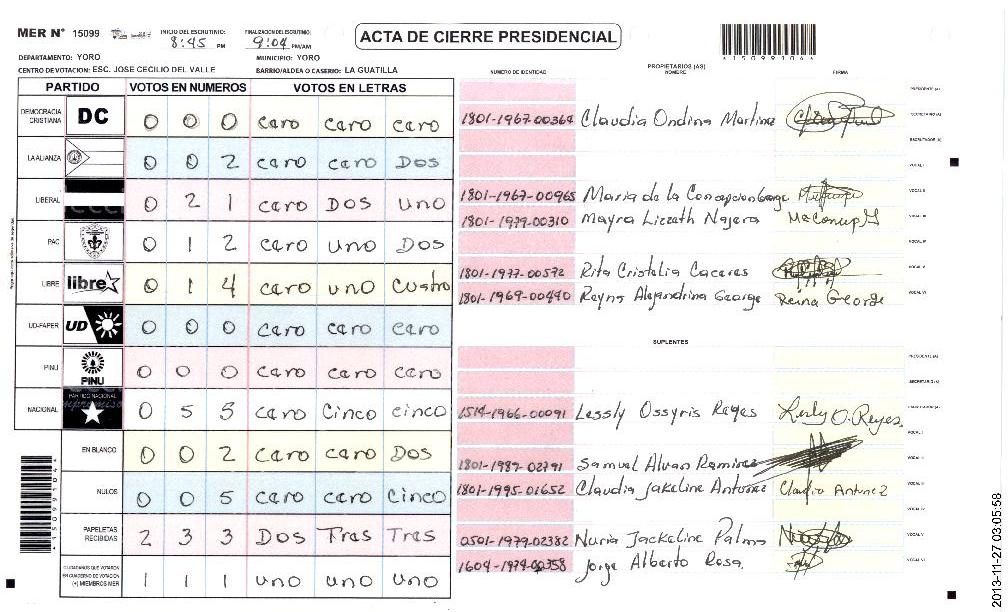 MER N° 15099 INICIO DEL ESCRUTINIO: 8:45 PM FINALIZACION DEL ESCRUTINIO: 9:04 PM/AM
ACTA DE CIERRE PRESIDENCIAL
DEPARTAMENTO: YORO MUNICIPIO: YORO
CENTRO DE VOTACION: ESC. JOSE CECILIO DEL VALLE BARRIO/ALDEA O CASERIO: LA GUATILLA
PARTIDO VOTOS EN NUMEROS VOTOS EN LETRAS
DEMOCRACIA CRISTIANA DC 0 0 0 caro caro caro
LA ALIANZA 0 0 2 caro caro Dos
LIBERAL 0 2 1 caro DOS uno
PAC 0 1 2 caro uno Dos
LIBRE libre 0 1 4 caro uno Cuatro
UD-FAPER UD 0 0 0 caro caro caro
PINU PINU 0 0 0 caro caro caro
NACIONAL PARTIDO NACIONAL 0 5 5 caro Cinco cinco
EN BLANCO 0 0 2 caro caro Dos
NULOS 0 0 5 caro caro Cinco
PAPELETAS RECIBIDAS 2 3 3 Dos Tres Tres
CIUDADANOS QUE VOTARON EN CUADERNO DE VOTACION (+) MIEMBROS MER 1 1 1 uno uno uno
PROPIETARIOS (AS)
NUMERO DE IDENTIDAD NOMBRE FIRMA
PRESIDENTE (A)
1801-1967-00364 Claudia Ondina Martinez SECRETARIO (A)
ESCRUTADOR (A)
VOCAL I
1801-1967-00965 Maria de la Concepcion George VOCAL II
1801-1979-00310 Mayra Lizzath Najera VOCAL III
VOCAL IV
1801-1977-00572 Rita Cristelia Caceres VOCAL V
1801-1969-00490 Reyna Alejandrina George Reina George VOCAL VI
SUPLENTES
PRESIDENTE (A)
SECRETARIO (A)
1514-1966-00091 Lessly Ossyris Reyes Lesly O. Reyes. ESCRUTADOR (A)
VOCAL I
1801-1989-02791 Samuel Alvan Ramirez VOCAL II
1801-1995-01652 Claudia Jakeline Antunez Claudia Antunez VOCAL III
0501-1979-02382 Nuria Jackeline Palma VOCAL V
1604-1974-00358 Jorge Alberto Rosa. VOCAL VI
*1509904*
*1509904*
2013-11-27 03:05:58